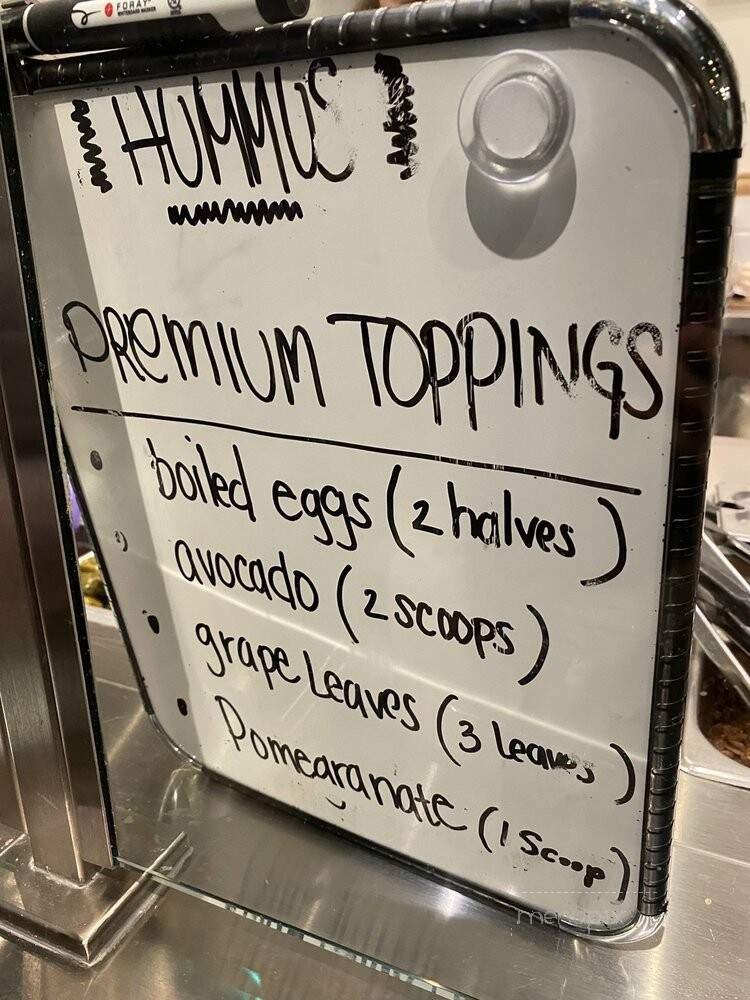 FORAY
HUMMUS
PREMIUM TOPPINGS
boiled eggs (2 halves)
avocado (2 scoops)
grape Leaves (3 Leaves)
Pomegranate (1 Scoop)